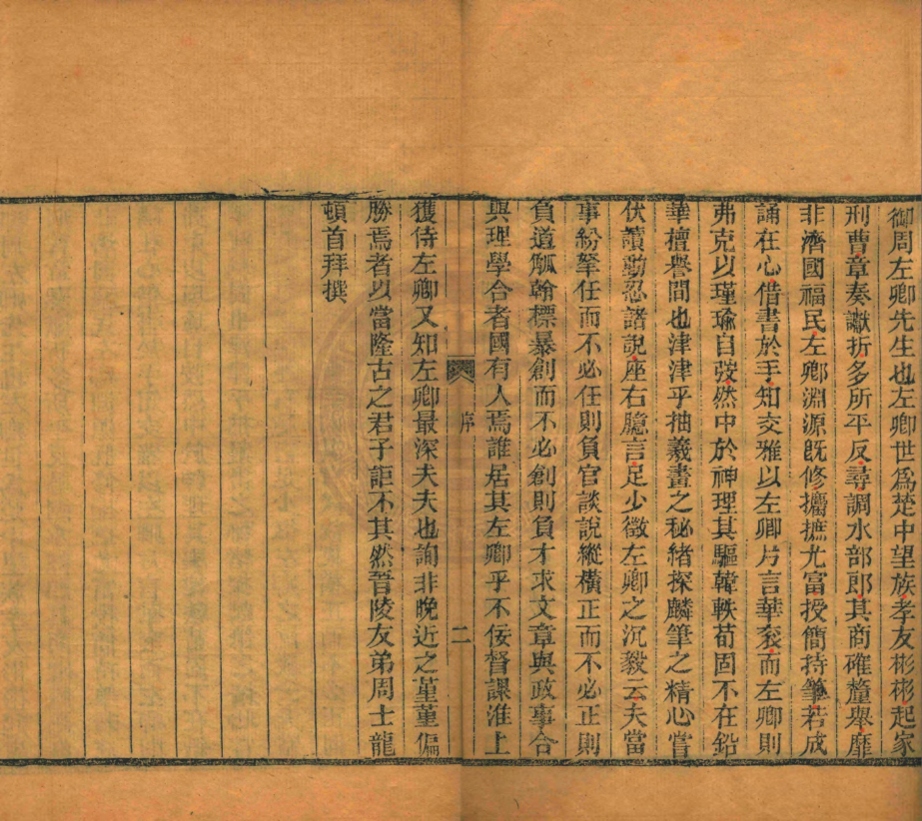 御周左卿先生也左卿世爲楚中望族孝友彬彬起家
刑曹章奏讞折多所平反尋調水部郎其商確釐舉靡
非濟國福民左卿淵源旣修攟摭尤富授簡持筆若成
誦在心借書於手知交雅以左卿片言華衮而左卿則
弗克以瑾瑜自弢然中於神理其驅韓軼荀固不在鉛
華檀譽間也津津乎抽羲畫之秘緒探麟筆之精心嘗
伏讀動忍諸說座右臆言足少徵左卿之沉毅云夫當
事紛拏任而不必任則負官談說縱橫正而不必正則
負道觚翰標暴創而不必創則負才求文章與政事合
與理學合者國有人焉誰居其左卿乎不佞督課淮上
序
二
獲侍左卿又知左卿最深夫夫也詢非晚近之堇堇偏
勝焉者以當隆古之君子詎不其然晉陵友弟周士龍
頓首拜撰